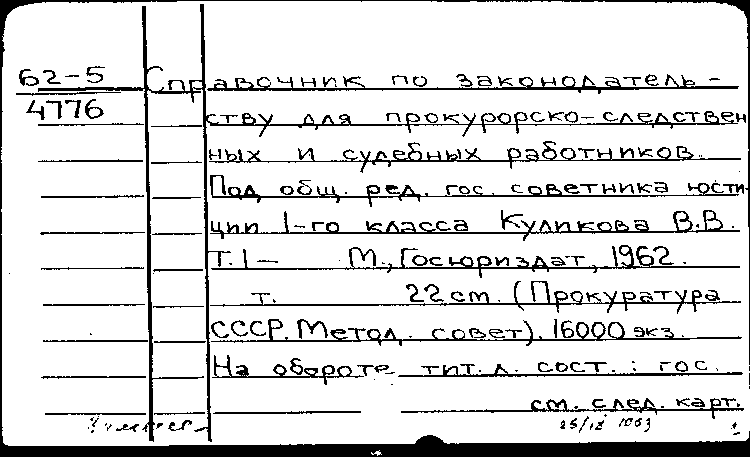 62-5 Справочник по законодатель-
4776 ству для прокурорско-следствен
ных и судебных работников.
Под общ. ред. гос. советника юсти-
ции 1-го класса Куликова В.В.
Т.1- М., Госюриздат, 1962.
т. 22 cm. (Прокуратура
СССР. Метод. совет). 16000 экз.
На обороте тит. л. сост.: гос.
см. след. карт.